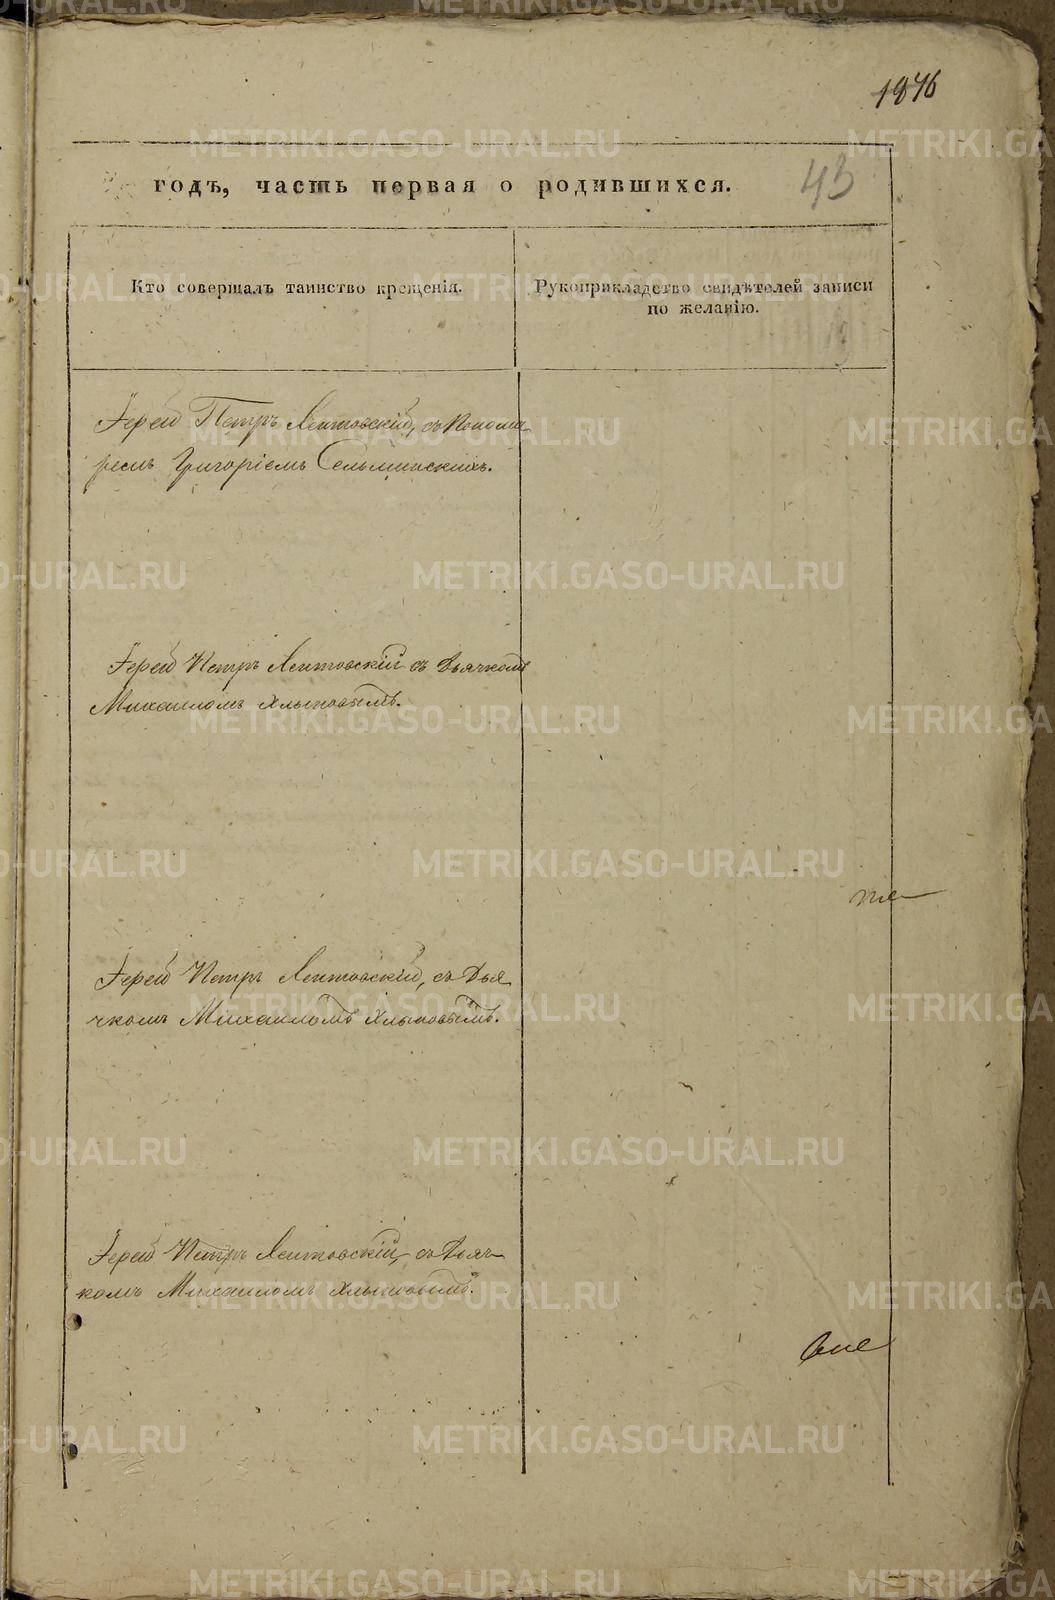 1846
43
годъ, часть первая о родившихся.
Кто совершалъ таинство крещенія.
Рукоприкладство свидѣтелей записи
по желанію.
Іерей Петръ Лентовскій, съ Понома
ремъ Григоріемъ Сельминскихъ.
Іерей Петръ Лентовскій съ Дьячкомъ
Михаиломъ Хлыновымъ.
Іерей Петръ Лентовскій, съ Дья
чкомъ Михаиломъ Хлыновымъ.
Іерей Петръ Лентовскій, съ Дьяч
комъ Михаиломъ Хлыновымъ.
METRIKI.GASO-URAL.RU